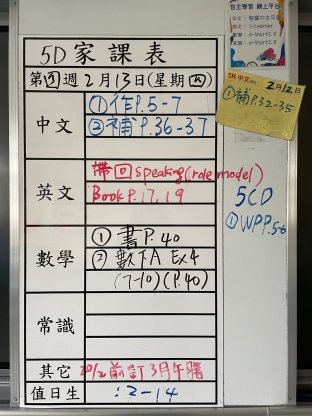 自主學習 網上平台
5D 家課表
第四週2月13日(星期四)
中文
①作P.5-7
②補P.36-37
英文
帶回speaking(role model)
Book P.17,19
數學
① 書P.40
② 數下A Ex4
(7-10)(P.40)
常識
其它
20/2前訂3月午膳
值日生
:2-14
5A 中文
2月12日
①補P.32-35
5CD
①WPP.5-6